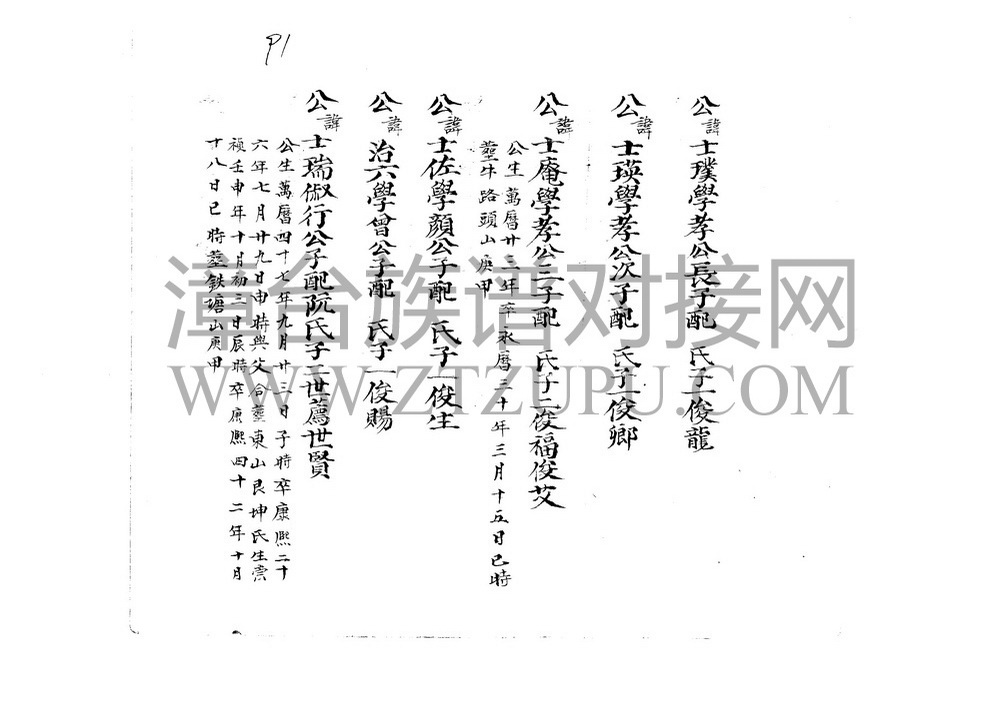 P1
公諱士璞學孝公長子配 氏子一俊龍
公諱士瑛學孝公次子配 氏子一俊鄉
公諱士庵學孝公三子配 氏子二俊福俊艾
公生萬曆廿三年卒永曆三十年三月十五日巳時
塟牛路頭山庚甲
公諱士佐學顏公子配 氏子一俊生
公諱治六學曾公子配 氏子一俊賜
公諱士瑞俶行公子配阮氏子二世薦世賢
公生萬曆四十七年九月廿三日子時卒康熙二十
六年七月廿九日申時與父合塟東山艮坤氏生崇
禎壬申年十月初三日辰時卒康熙四十二年十月
十八日巳時塟鉄塘山庚甲
漳台族谱对接网
WWW.ZTZUPU.COM